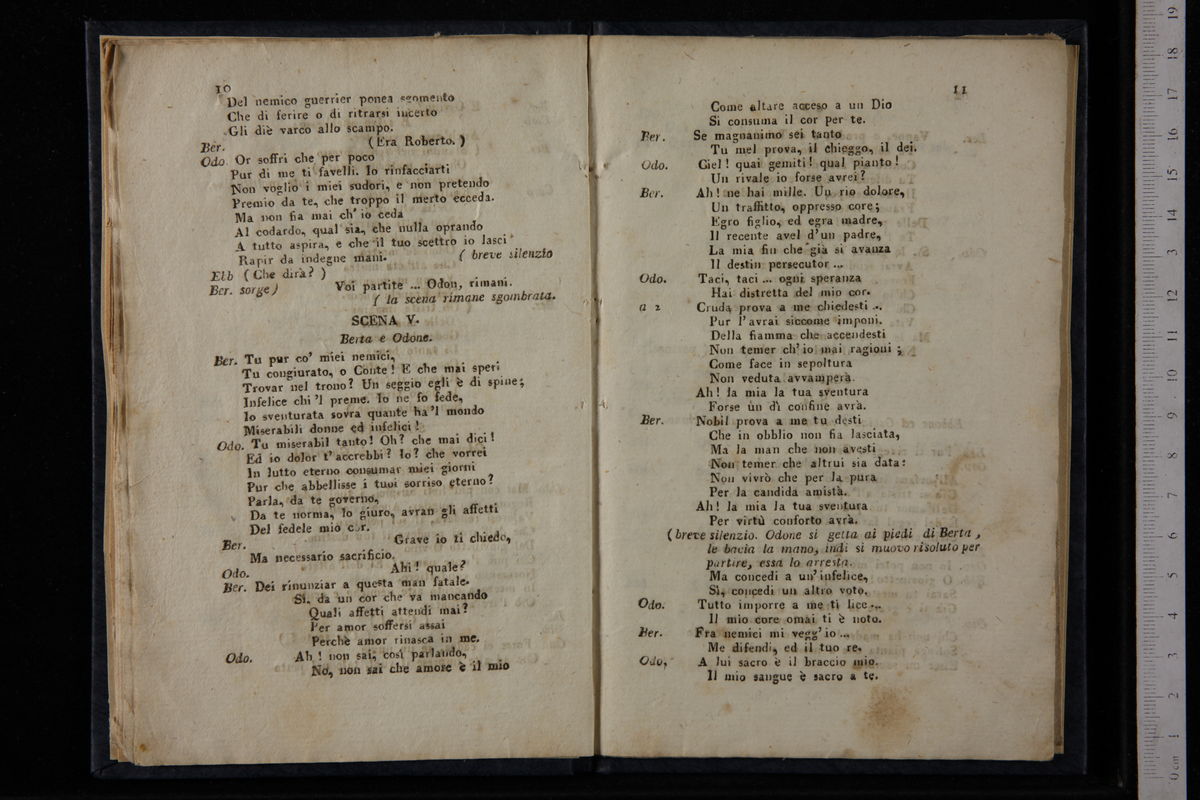 10
Del nemico guerrier ponea sgomento
Che di ferire o di ritrarsi incerto
Gli diè varco allo scampo.
Ber. (Era Roberto.)
Odo. Or soffri che per poco
Pur di me ti favelli. Io rinfacciarti
Non voglio i miei sudori, e non pretendo
Premio da te, che troppo il merto ecceda.
Ma non fia mai ch' io ceda
Al codardo, qual sia, che nulla oprando
A tutto aspira, e che il tuo scettro io lasci
Rapir da indegne mani. ( breve silenzio
Elb ( Che dirà? )
Ber. sorge) Voi partite ... Odon, rimani.
( la scena rimane sgombrata.
SCENA V.
Berta e Odone.
Ber. Tu pur co' miei nemici,
Tu congiurato, o Conte! E che mai speri
Trovar nel trono? Un seggio egli è di spine;
Infelice chi 'l preme. Io ne fo fede,
Io sventurata sovra quante ha 'l mondo
Miserabili donne ed infelici!
Odo. Tu miserabil tanto! Oh? che mai dici!
Ed io dolor t' accrebbi? Io? che vorrei
In lutto eterno consumar miei giorni
Pur che abbellisse i tuoi sorriso eterno?
Parla, da te governo,
Da te norma, Io giuro, avran gli affetti
Del fedele mio cor.
Ber. Grave io ti chiedo,
Ma necessario sacrificio.
Odo. Ahi! quale?
Ber. Dei rinunziar a questa man fatale.
Sì, da un cor che va mancando
Quali affetti attendi mai?
Per amor soffersi assai
Perchè amor rinasca in me.
Odo. Ah! non sai, così parlando,
No, non sai che amore è il mio
11
Come altare acceso a un Dio
Si consuma il cor per te.
Ber. Se magnanimo sei tanto
Tu mel prova, il chieggo, il dei.
Odo. Ciel! quai gemiti! qual pianto!
Un rivale io forse avrei?
Ber. Ah! ne hai mille. Un rio dolore,
Un traffitto, oppresso core;
Egro figlio, ed egra madre,
Il recente avel d'un padre,
La mia fin che già si avanza
Il destin persecutor ...
Odo. Taci, taci ... ogni speranza
Hai distretta del mio cor.
a 2 Cruda prova a me chiedesti ...
Pur l'avrai siccome imponi.
Della fiamma che accendesti
Non temer ch' io mai ragioni;
Come face in sepoltura
Non veduta avvamperà.
Ah! la mia la tua sventura
Forse un dì confine avrà.
Ber. Nobil prova a me tu desti
Che in obblio non fia lasciata,
Ma la man che non avesti
Non temer che altrui sia data:
Non vivrò che per la pura
Per la candida amistà.
Ah! la mia la tua sventura
Per virtù conforto avrà.
(breve silenzio. Odone si getta ai piedi di Berta,
le bacia la mano, indi si muovo risoluto per
partire, essa lo arresta.
Ma concedi a un' infelice,
Sì, concedi un altro voto.
Odo. Tutto imporre a me ti lice...
Il mio core omai ti è noto.
Ber. Fra nemici mi vegg' io ...
Me difendi, ed il tuo re.
Odo, A lui sacro è il braccio mio.
Il mio sangue è sacro a te.
19
18
17
16
15
14
13
12
11
10
9
8
7
6
5
4
3
2
1
0 cm